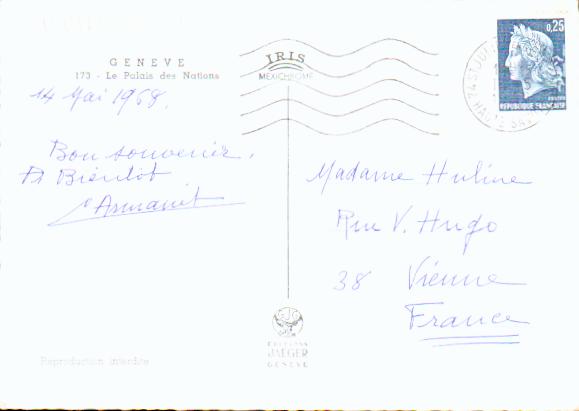 GENEVE
173 - Le Palais des Nations
14 Mai 1968.
Bon souvenir.
A Bientôt
IRIS
MEXICHROME
0,25
REPUBLIQUE FRANÇAISE
74 ST JUL
HAUTE SAV
Madame Huline
Rue V. Hugo
38 Vienne
France
EDITIONS
JAEGER
GENEVE
Reproduction interdite